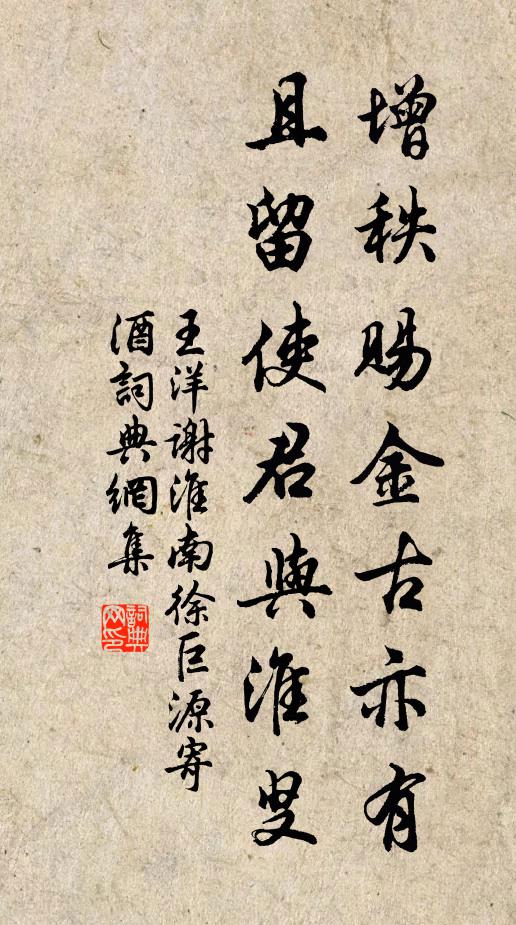 增秩赐金古亦有
且留使君與淮叟
王洋谢淮南徐巨源寄
酒詞典網集
詞典
网印